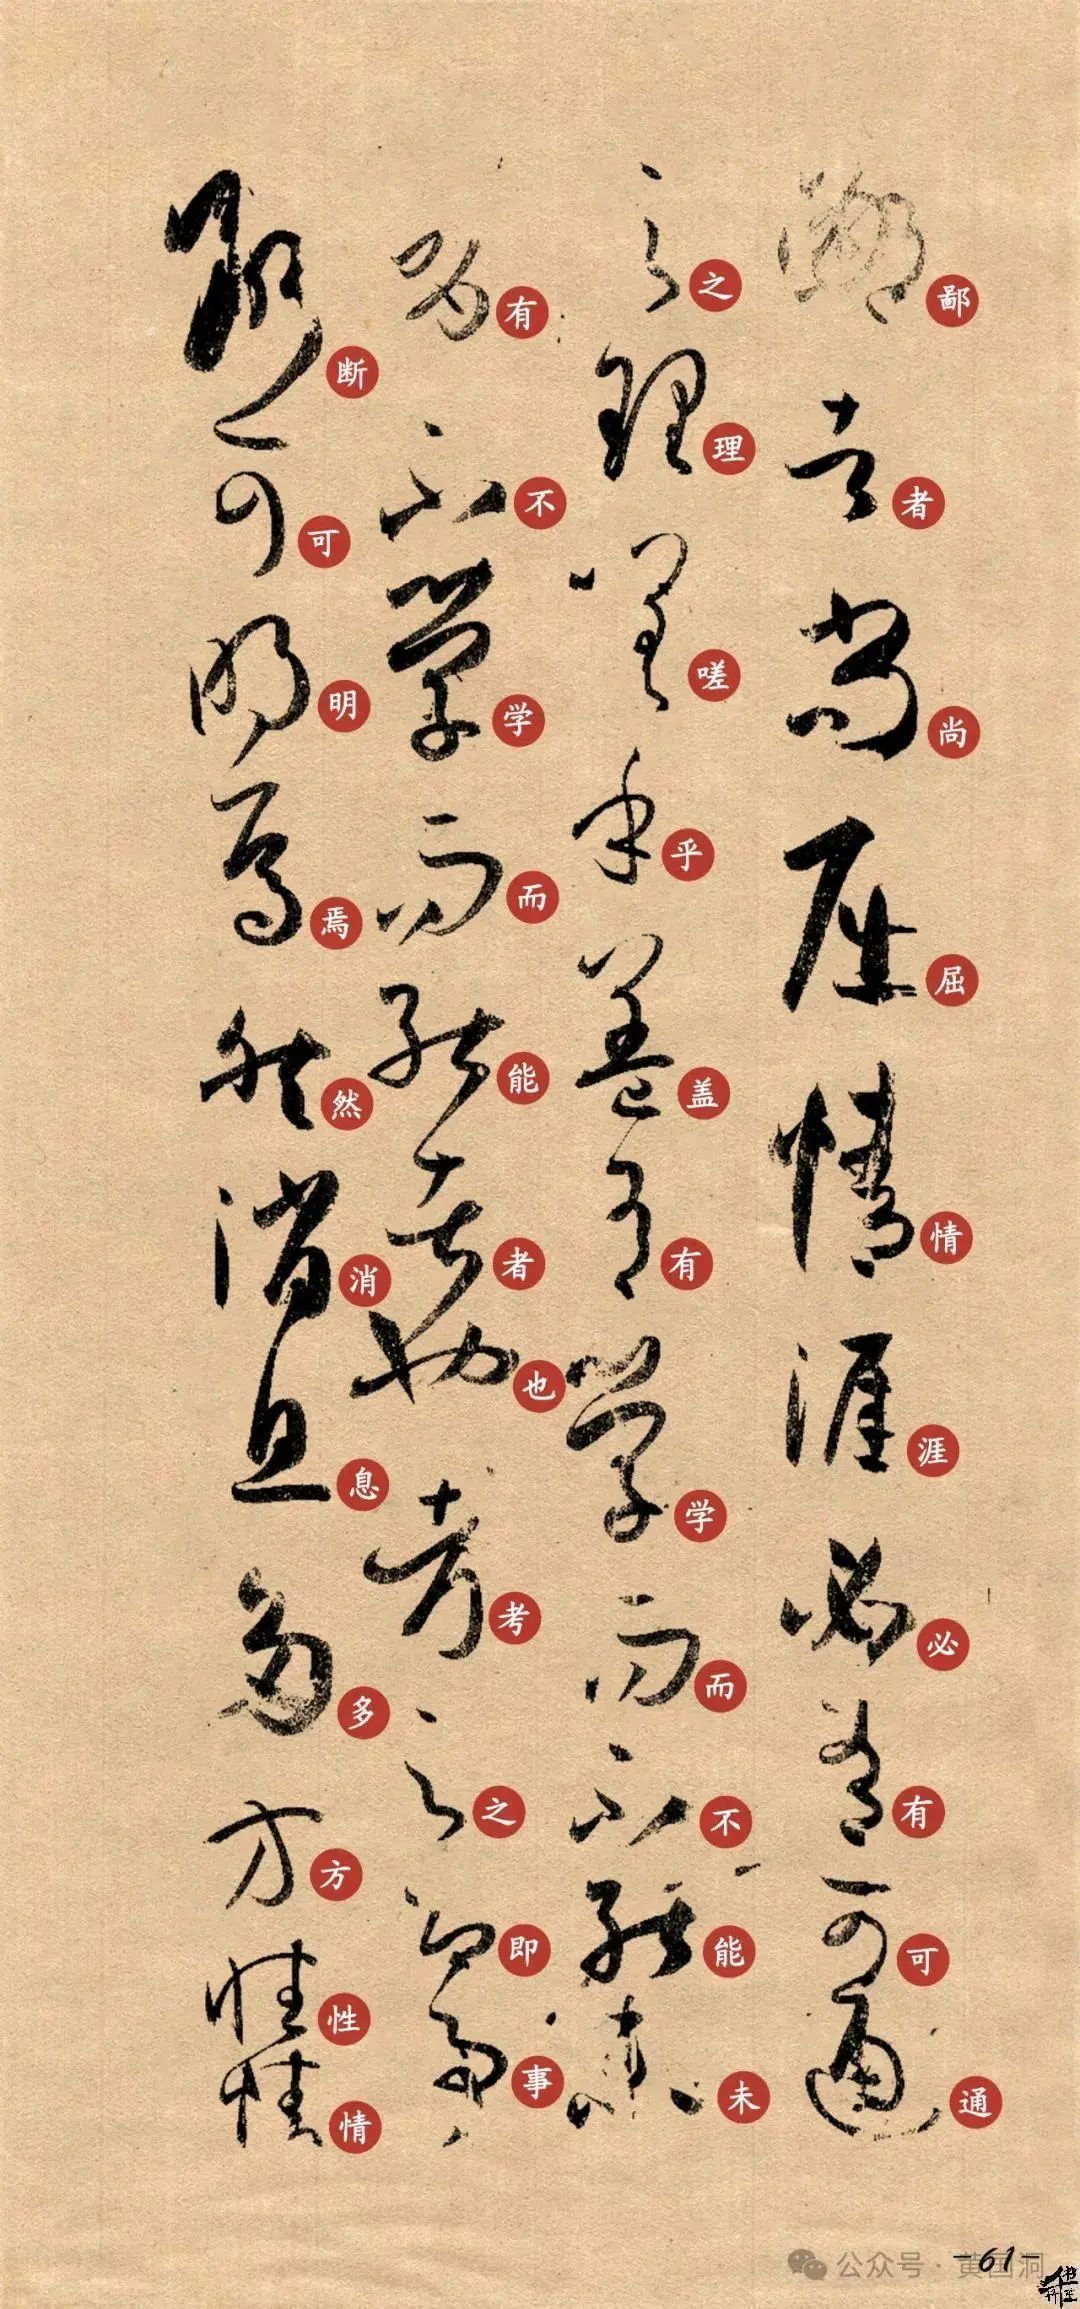 鄙者尚屈情涯必有可通
之理嗟乎盖有学而不能未
有不学而能者也考之即事
断可明焉然消息多方性情
公众号·黄国洞
-61-